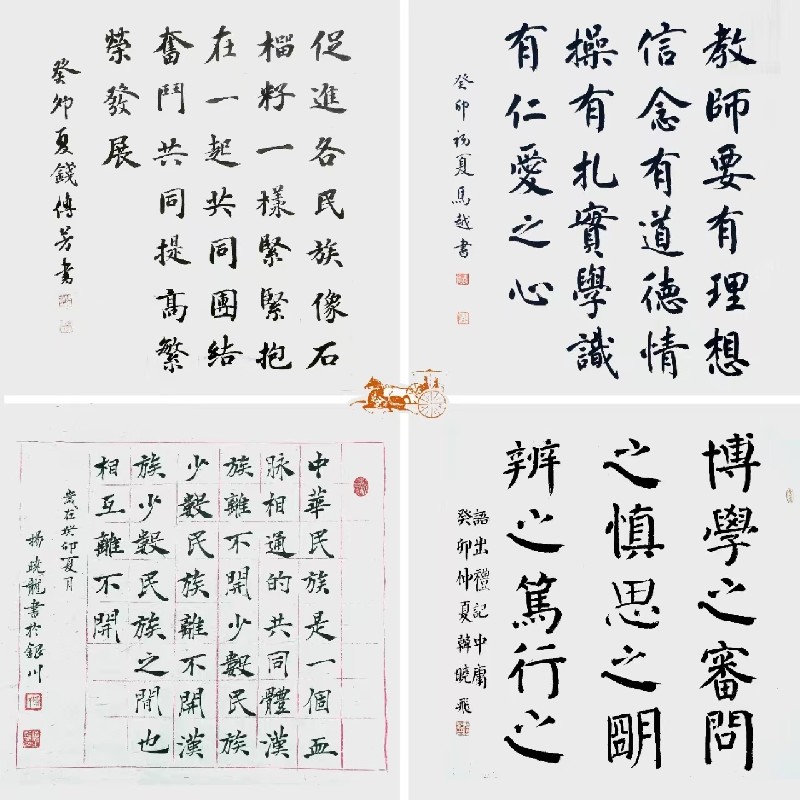 促進各民族像石
榴籽一樣緊緊抱
在一起共同團結
奮鬥共同提高繁
榮發展
癸卯夏錢傅芳書
教師要有理想
信念有道德情
操有扎實學識
有仁愛之心
癸卯初夏馬越書
中華民族是一個血
脉相通的共同體漢
族離不開少數民族
少數民族離不開漢
族少數民族之間也
相互離不開
歲在癸卯夏月
楊曉龍書於銀川
博學之審問
之慎思之明
辨之篤行之
語出禮記中庸
癸卯仲夏韓曉飛